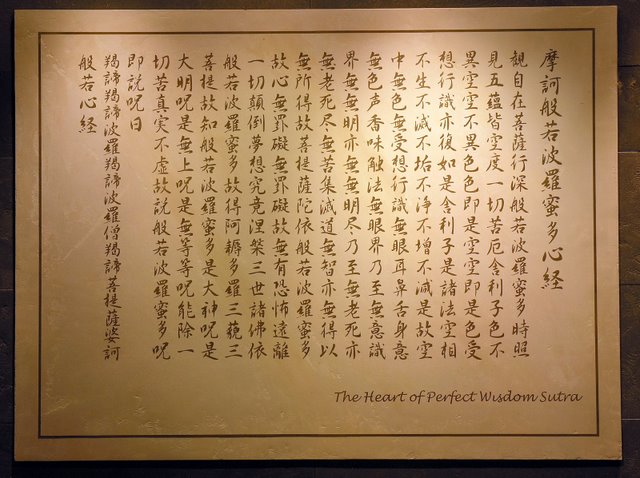 摩訶般若波羅蜜多心経
観自在菩薩行深般若波羅蜜多時照
見五蘊皆空度一切苦厄舎利子色不
異空空不異色色即是空空即是色受
想行識亦復如是舎利子是諸法空相
不生不滅不垢不浄不増不減是故空
中無色無受想行識無眼耳鼻舌身意
無色声香味触法無眼界乃至無意識
界無無明亦無無明尽乃至無老死亦
無老死尽無苦集滅道無智亦無得以
無所得故菩提薩陀依般若波羅蜜多
故心無罣礙無罣礙故無有恐怖遠離
一切顛倒夢想究竟涅槃三世諸佛依
般若波羅蜜多故得阿耨多羅三藐三
菩提故知般若波羅蜜多是大神呪是
大明呪是無上呪是無等等呪能除一
切苦真実不虚故説般若波羅蜜多呪
即説呪曰
羯諦羯諦波羅羯諦波羅僧羯諦菩提薩婆訶
般若心経
The Heart of Perfect Wisdom Sutra